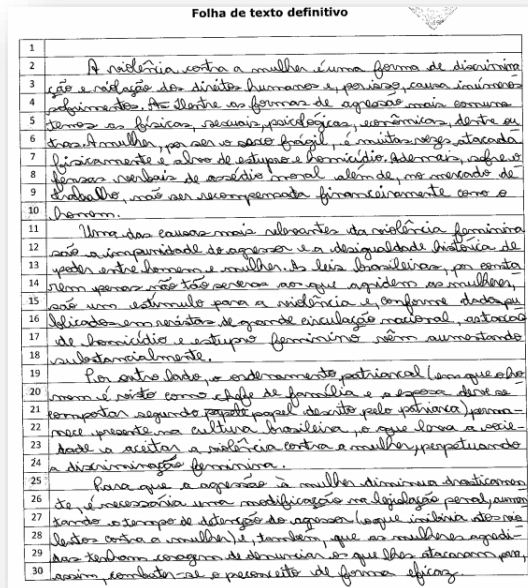 Folha de texto definitivo
1
2 A violência contra a mulher é uma forma de discrimina
3 ção e violação dos direitos humanos e, por isso, causa inúmeros
4 sofrimentos. Dentre as formas de agressão mais comuns
5 temos as físicas, sexuais, psicológicas, econômicas, dentre ou
6 tras. A mulher, por ser o sexo frágil, é muitas vezes atacada
7 fisicamente e alvo de estupro e homicídio. Ademais, sofre o
8 fensas verbais de assédio moral além de, no mercado de
9 trabalho, não ser recompensada financeiramente como o
10 homem.
11 Uma das causas mais relevantes da violência feminina
12 são a impunidade do agressor e a desigualdade histórica de
13 poder entre homem e mulher. As leis brasileiras, por conta
14 rem penas não tão severas aos que agridem as mulheres,
15 são um estímulo para a violência e, conforme dados pu
16 blicados em revistas de grande circulação nacional, os casos
17 de homicídio e estupro feminino vêm aumentando
18 substancialmente.
19 Por outro lado, o ordenamento patriarcal (em que o ho
20 mem é visto como chefe de família e a esposa deve se
21 comportar segundo papel descrito pelo patriarca), perma-
22 nece presente na cultura brasileira, o que leva a socie-
23 dade a aceitar a violência contra a mulher, perpetuando
24 a discriminação feminina.
25 Para que a agressão à mulher diminua drasticamen
26 te, é necessária uma modificação na legislação penal, aumen
27 tando o tempo de detenção do agressor (o que inibiria atos vio
28 lentos contra a mulher) e, também, que as mulheres agredi-
29 das tenham coragem de denunciar os que lhes atacaram para,
30 assim, combater-se o preconceito de forma eficaz.